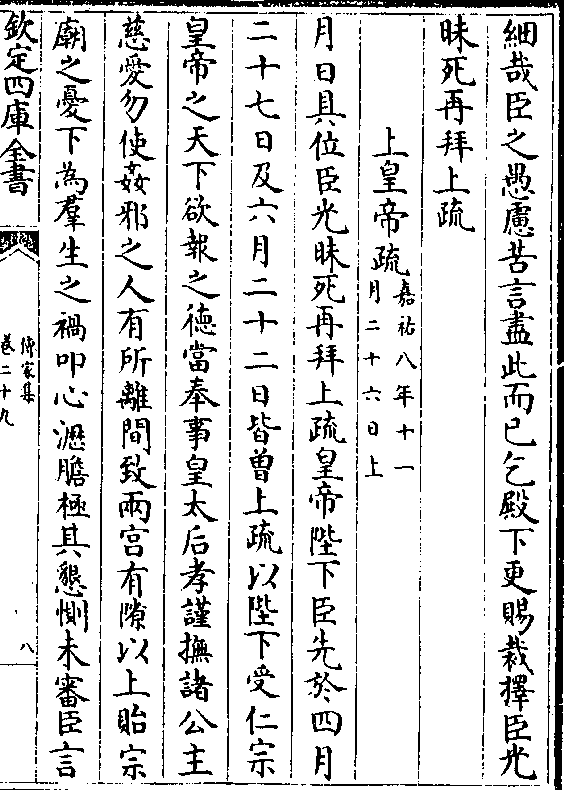 細哉臣之愚慮苦言盡此而已乞殿下更賜裁擇臣光
昧死再拜上疏
上皇帝疏嘉祐八年十一
月二十六日上
月日具位臣光昧死再拜上疏皇帝陛下臣先於四月
二十七日及六月二十二日皆曽上疏以陛下受仁宗
皇帝之天下欲報之德當奉事皇太后孝謹撫諸公主
慈愛勿使姦邪之人有所離間致兩宫有隙以上貽宗
廟之憂下為羣生之禍叩心瀝膽極其懇惻未審臣言
欽定四庫全書
傳家集
卷二十九
八